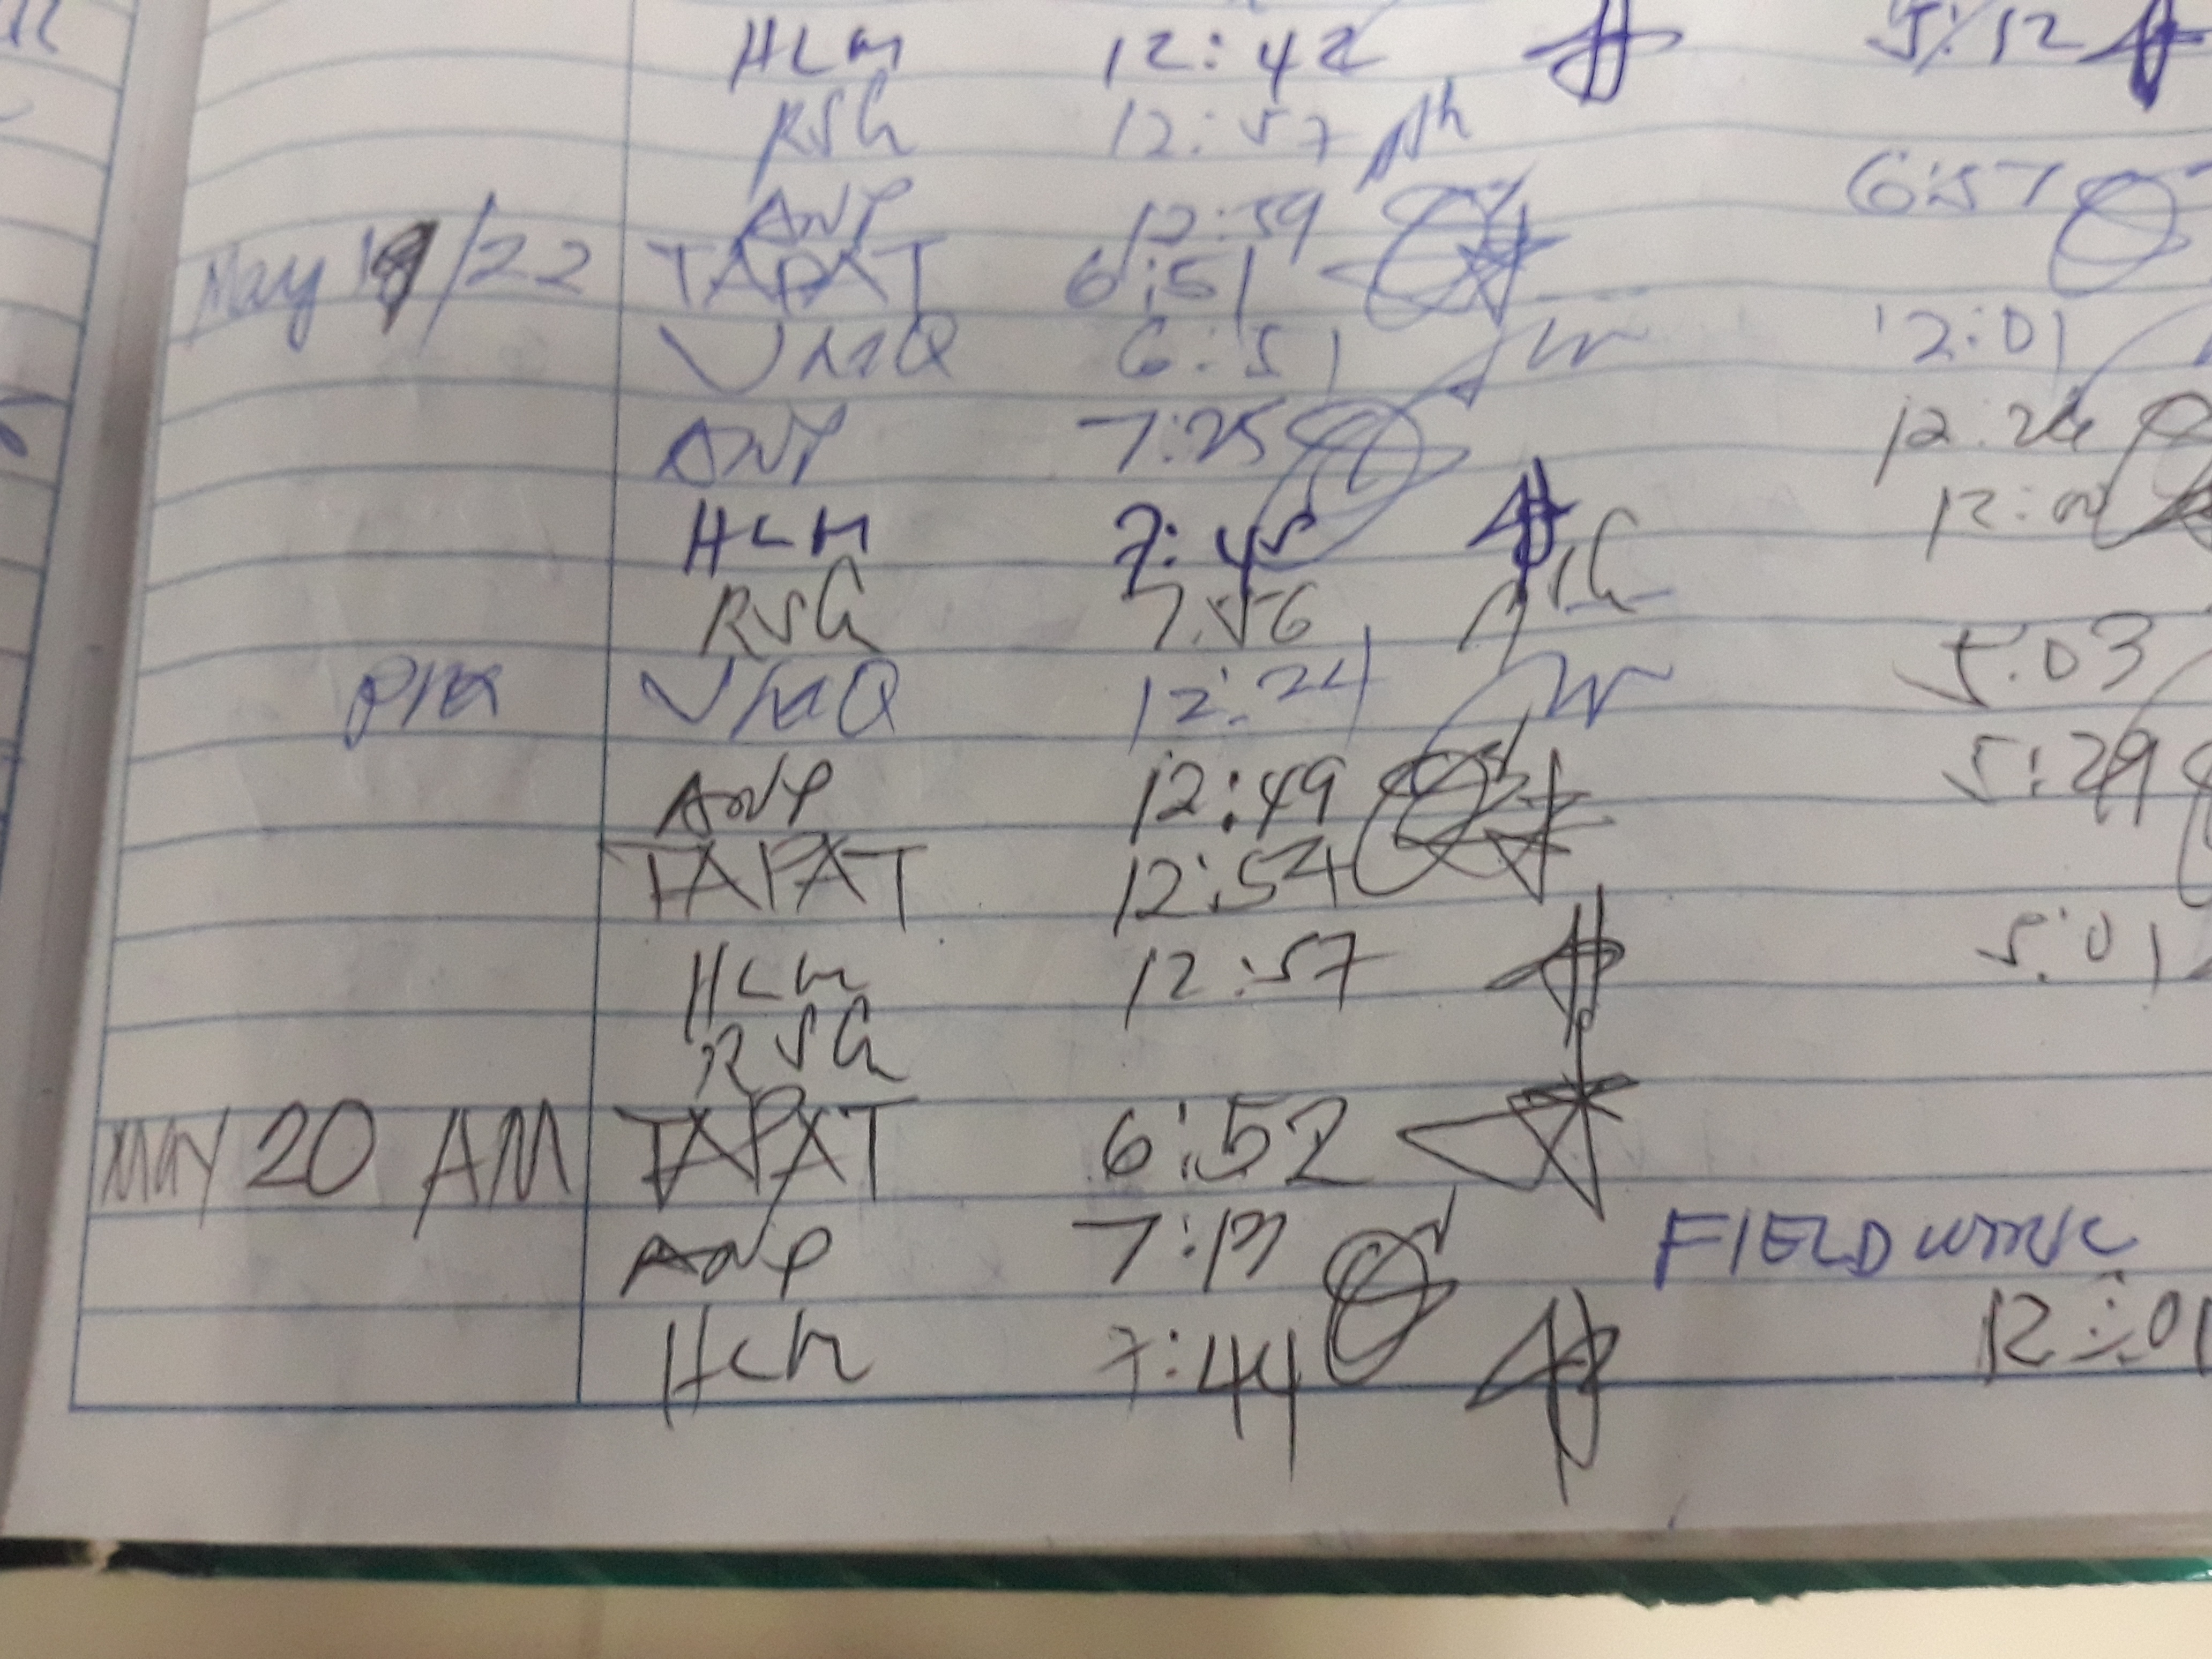 HLM 12:42 5:12
RSG 12:57
ANP 12:59 6:57
May 19/22 TAPAT 6:51
VMQ 6:51 12:01
ANP 7:25 12:26
HLM 7:45
RSG 7:56
PM VMQ 12:24 5:03
ANP 12:49 5:29
TAPAT 12:54
HLM 12:57 5:01
RSG
MAY 20 AM TAPAT 6:52
ANP 7:17 FIELD WORK
HLM 7:44 12:01